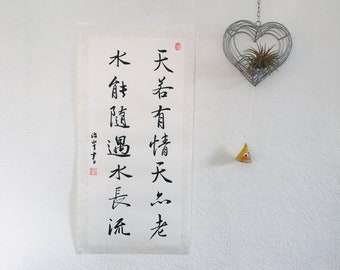 天若有情天亦老
水能隨遇水長流